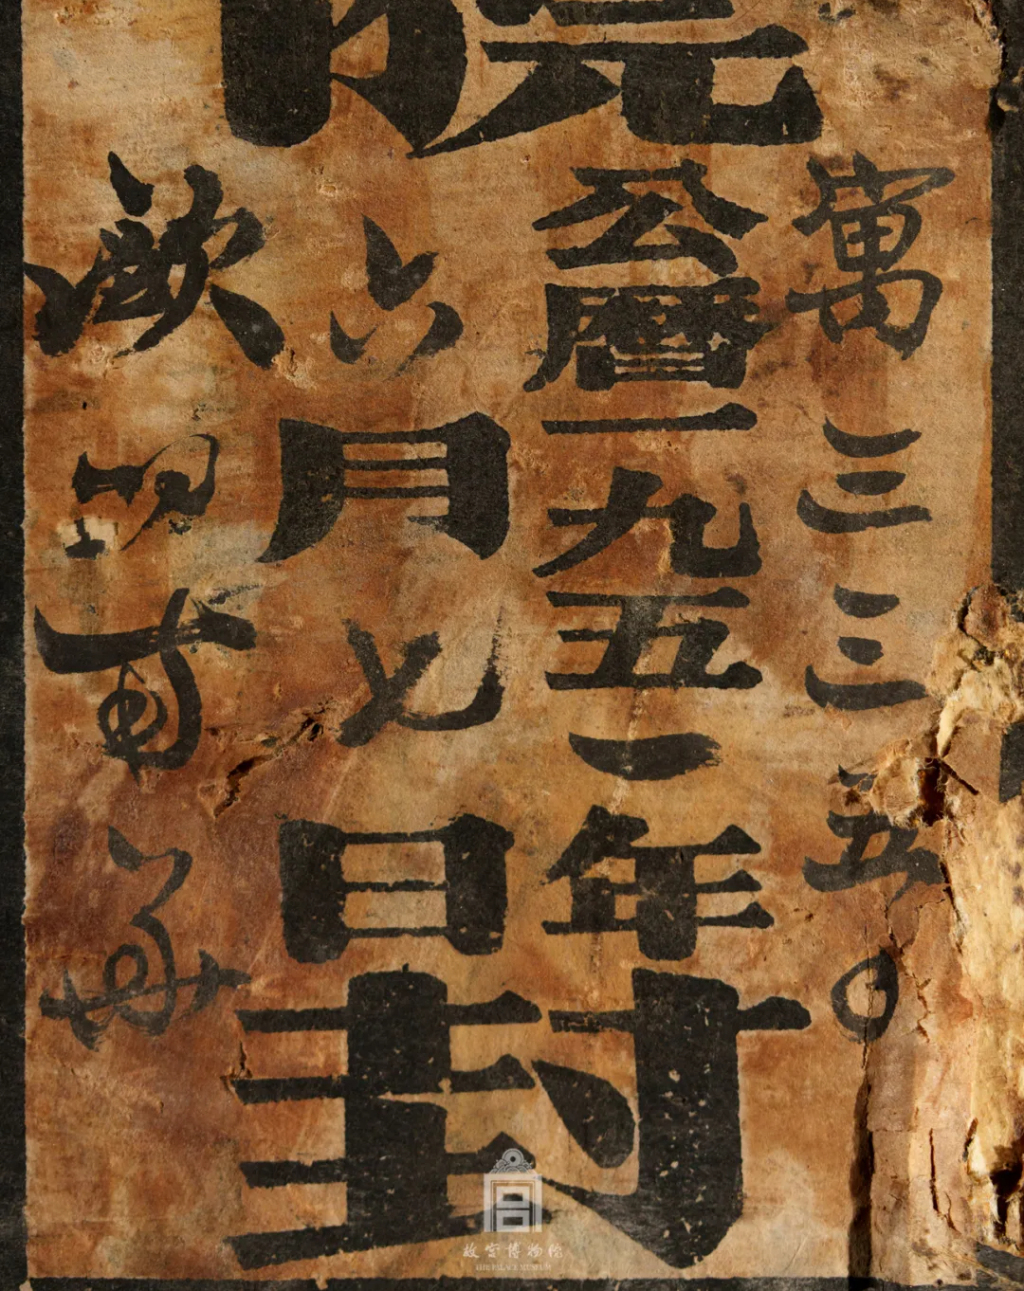 院
寓三三五〇
公曆一九五一年
六月七日
封
故宫博物院
THE PALACE MUSEUM